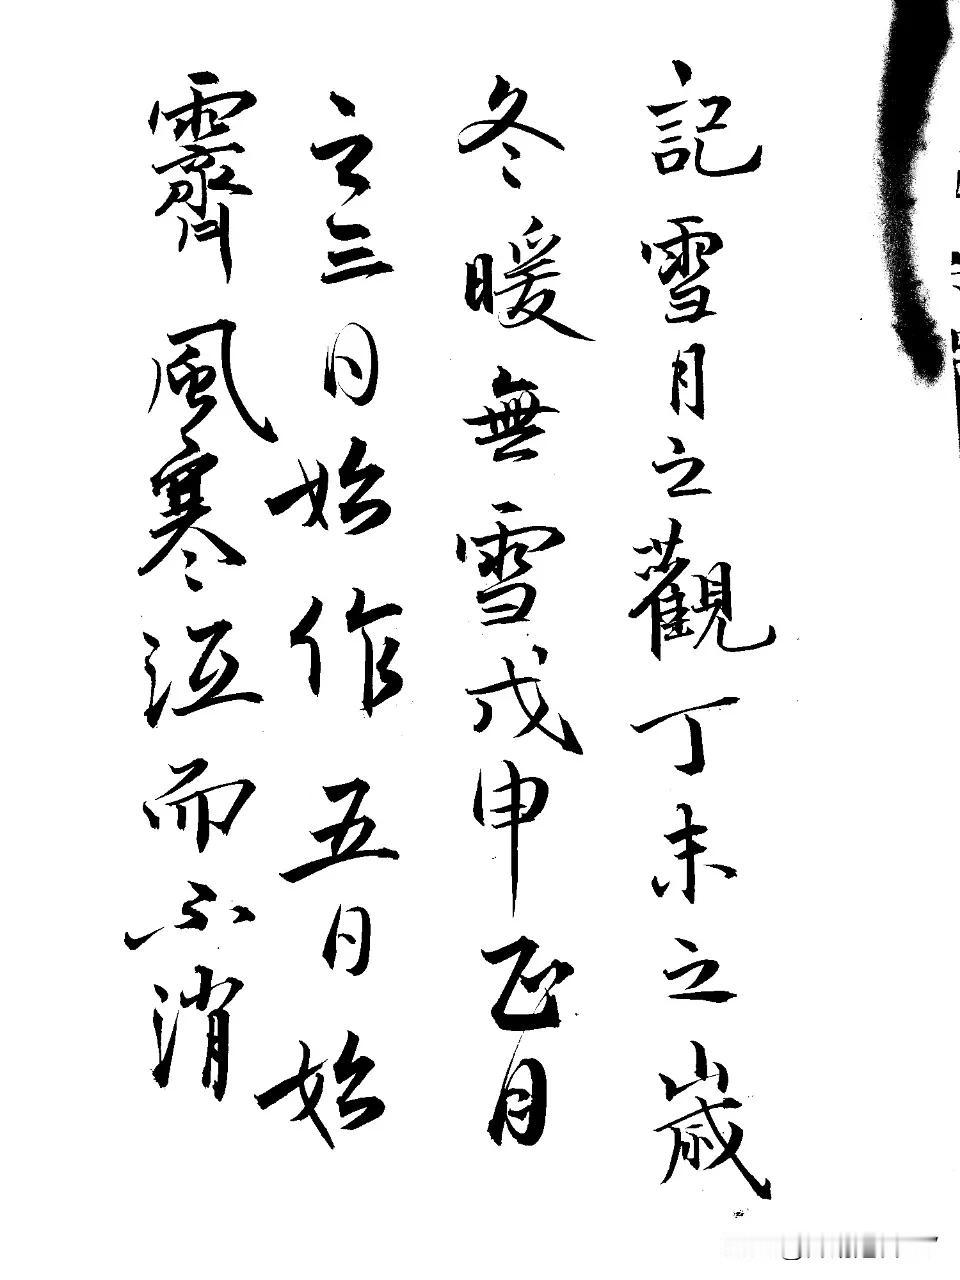 記雪月之觀丁未之歲
冬暖無雪戊申正月
之三日始作五日始
霽風寒沍而不消